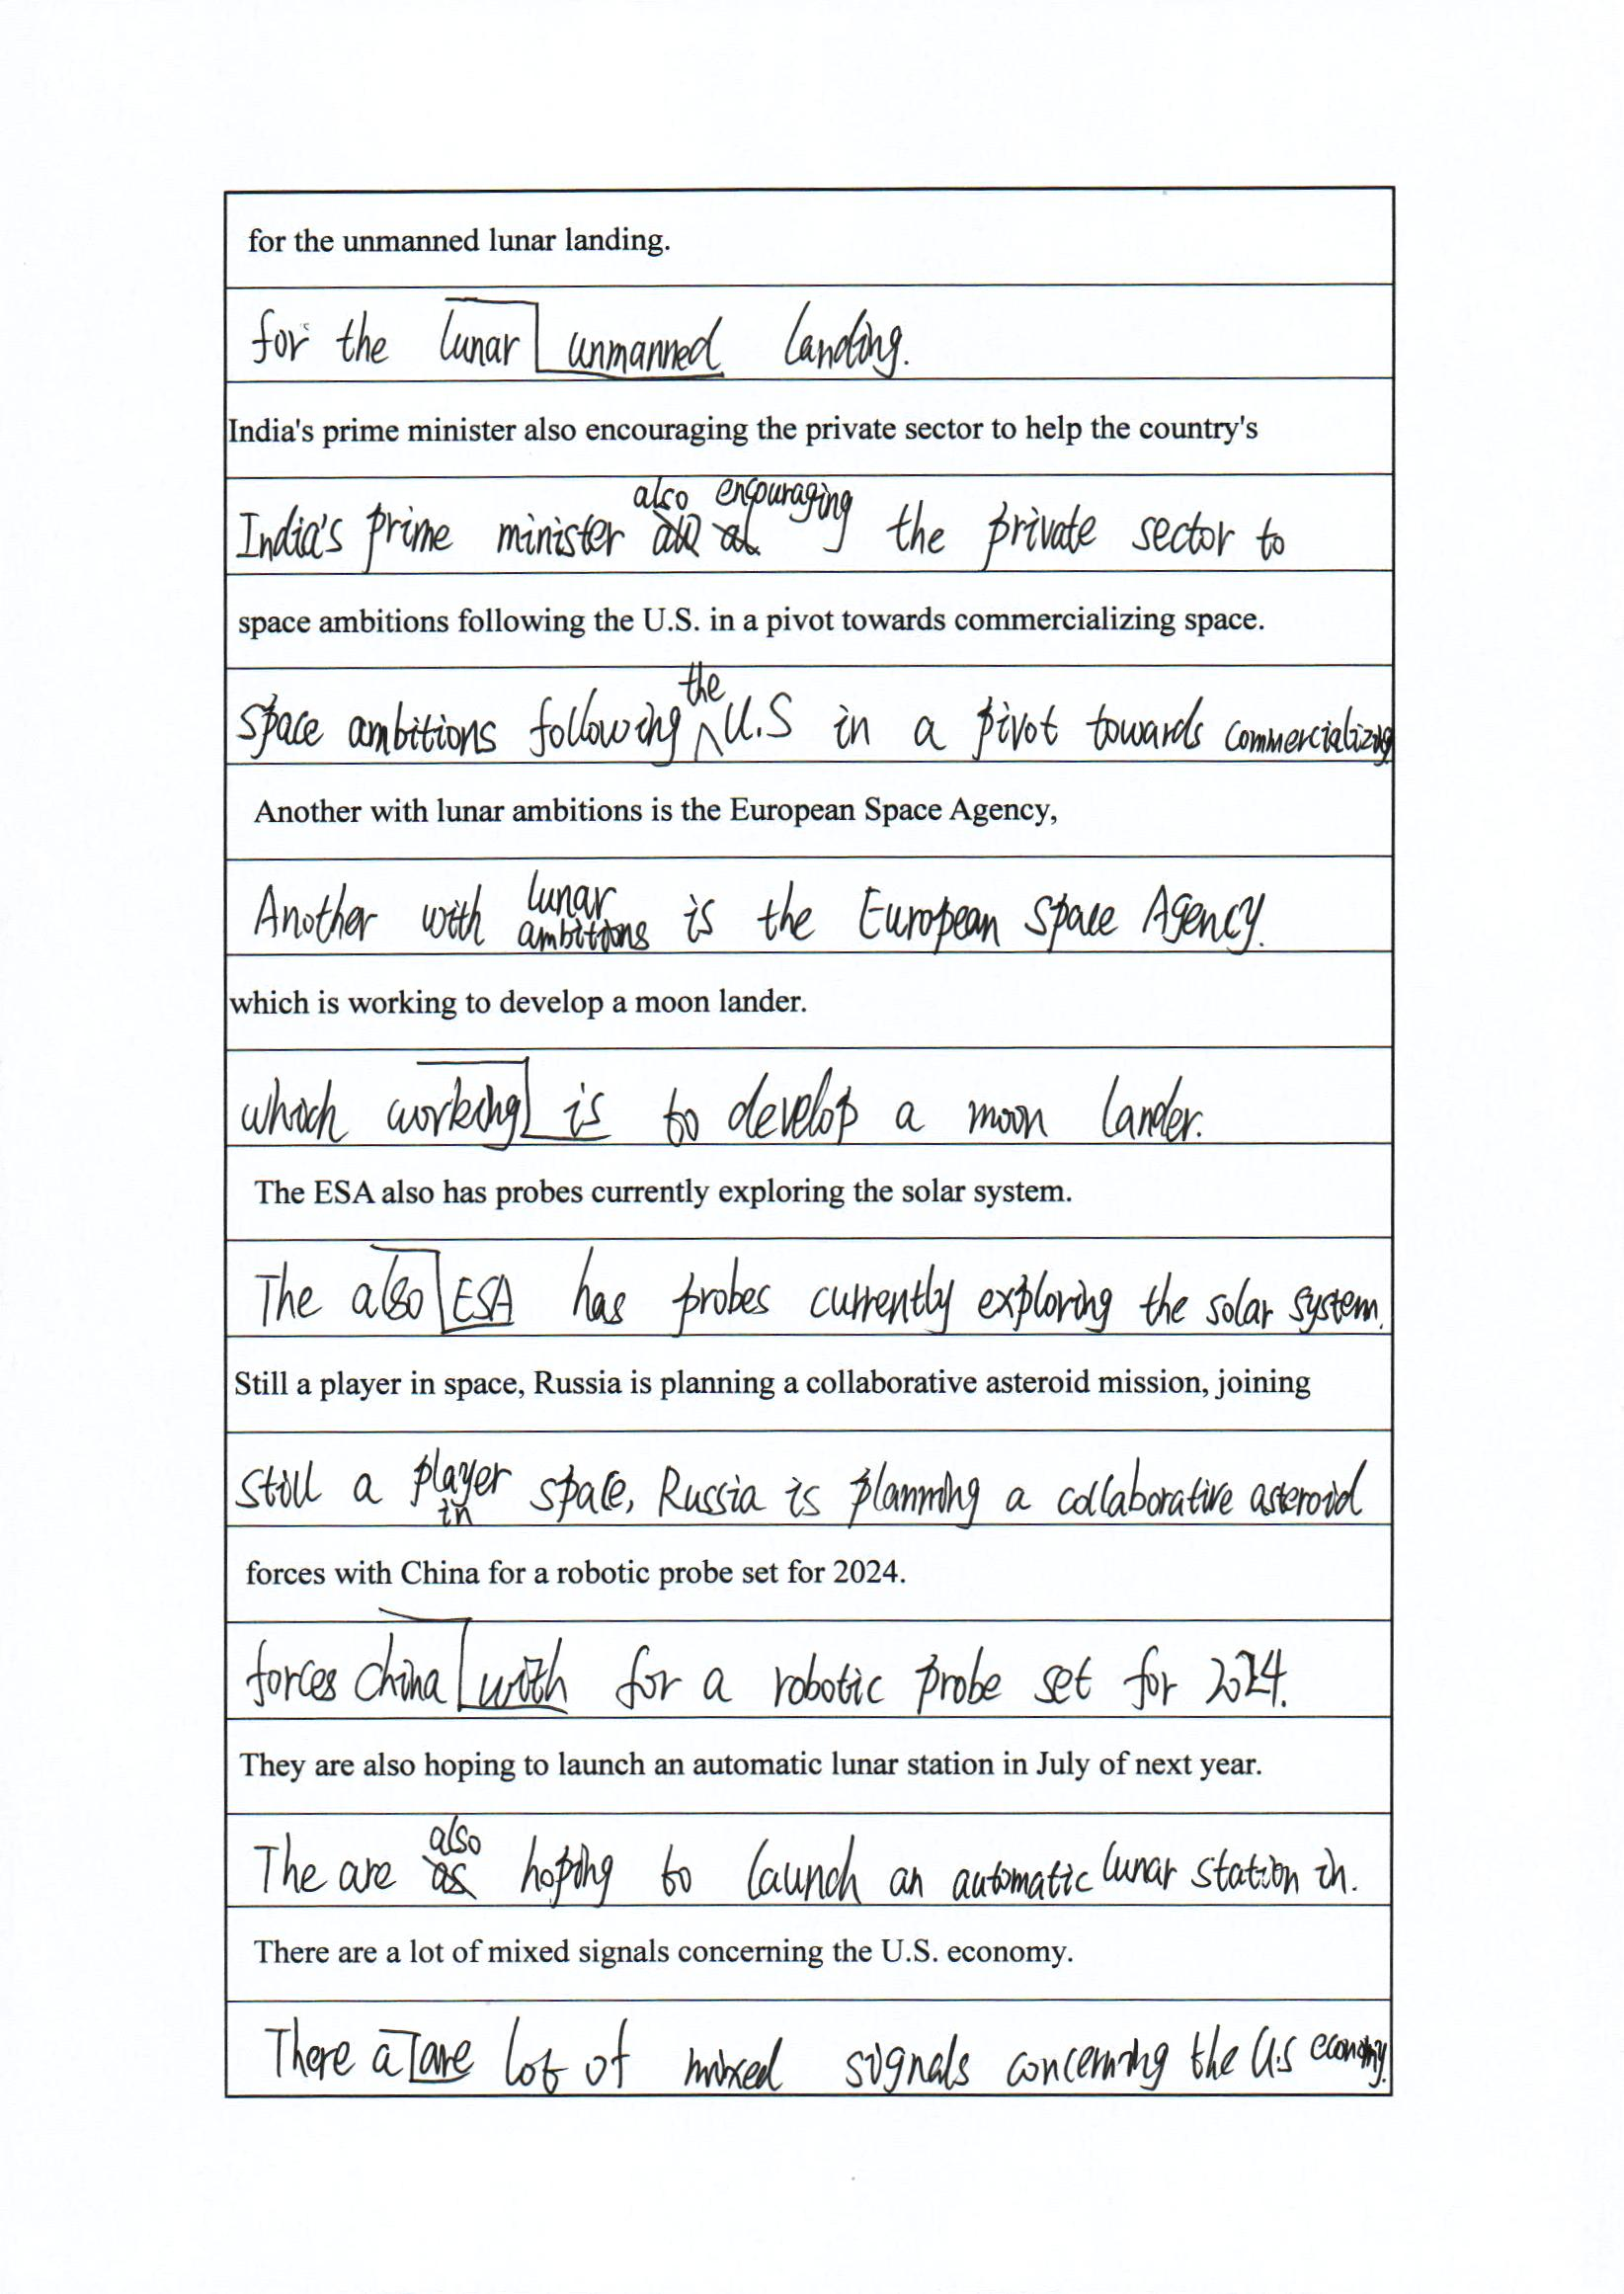 for the unmanned lunar landing.
for the lunar unmanned landing.
India's prime minister also encouraging the private sector to help the country's
India's prime minister also encouraging the private sector to
space ambitions following the U.S. in a pivot towards commercializing space.
space ambitions following the U.S in a pivot towards commercializing
Another with lunar ambitions is the European Space Agency,
Another with lunar ambitions is the European Space Agency.
which is working to develop a moon lander.
which working is to develop a moon lander.
The ESA also has probes currently exploring the solar system.
The also ESA has probes currently exploring the solar system.
Still a player in space, Russia is planning a collaborative asteroid mission, joining
Still a player in space, Russia is planning a collaborative asteroid
forces with China for a robotic probe set for 2024.
forces China with for a robotic probe set for 2024.
They are also hoping to launch an automatic lunar station in July of next year.
The are also hoping to launch an automatic lunar station in.
There are a lot of mixed signals concerning the U.S. economy.
There a are lot of mixed signals concerning the U.S economy.